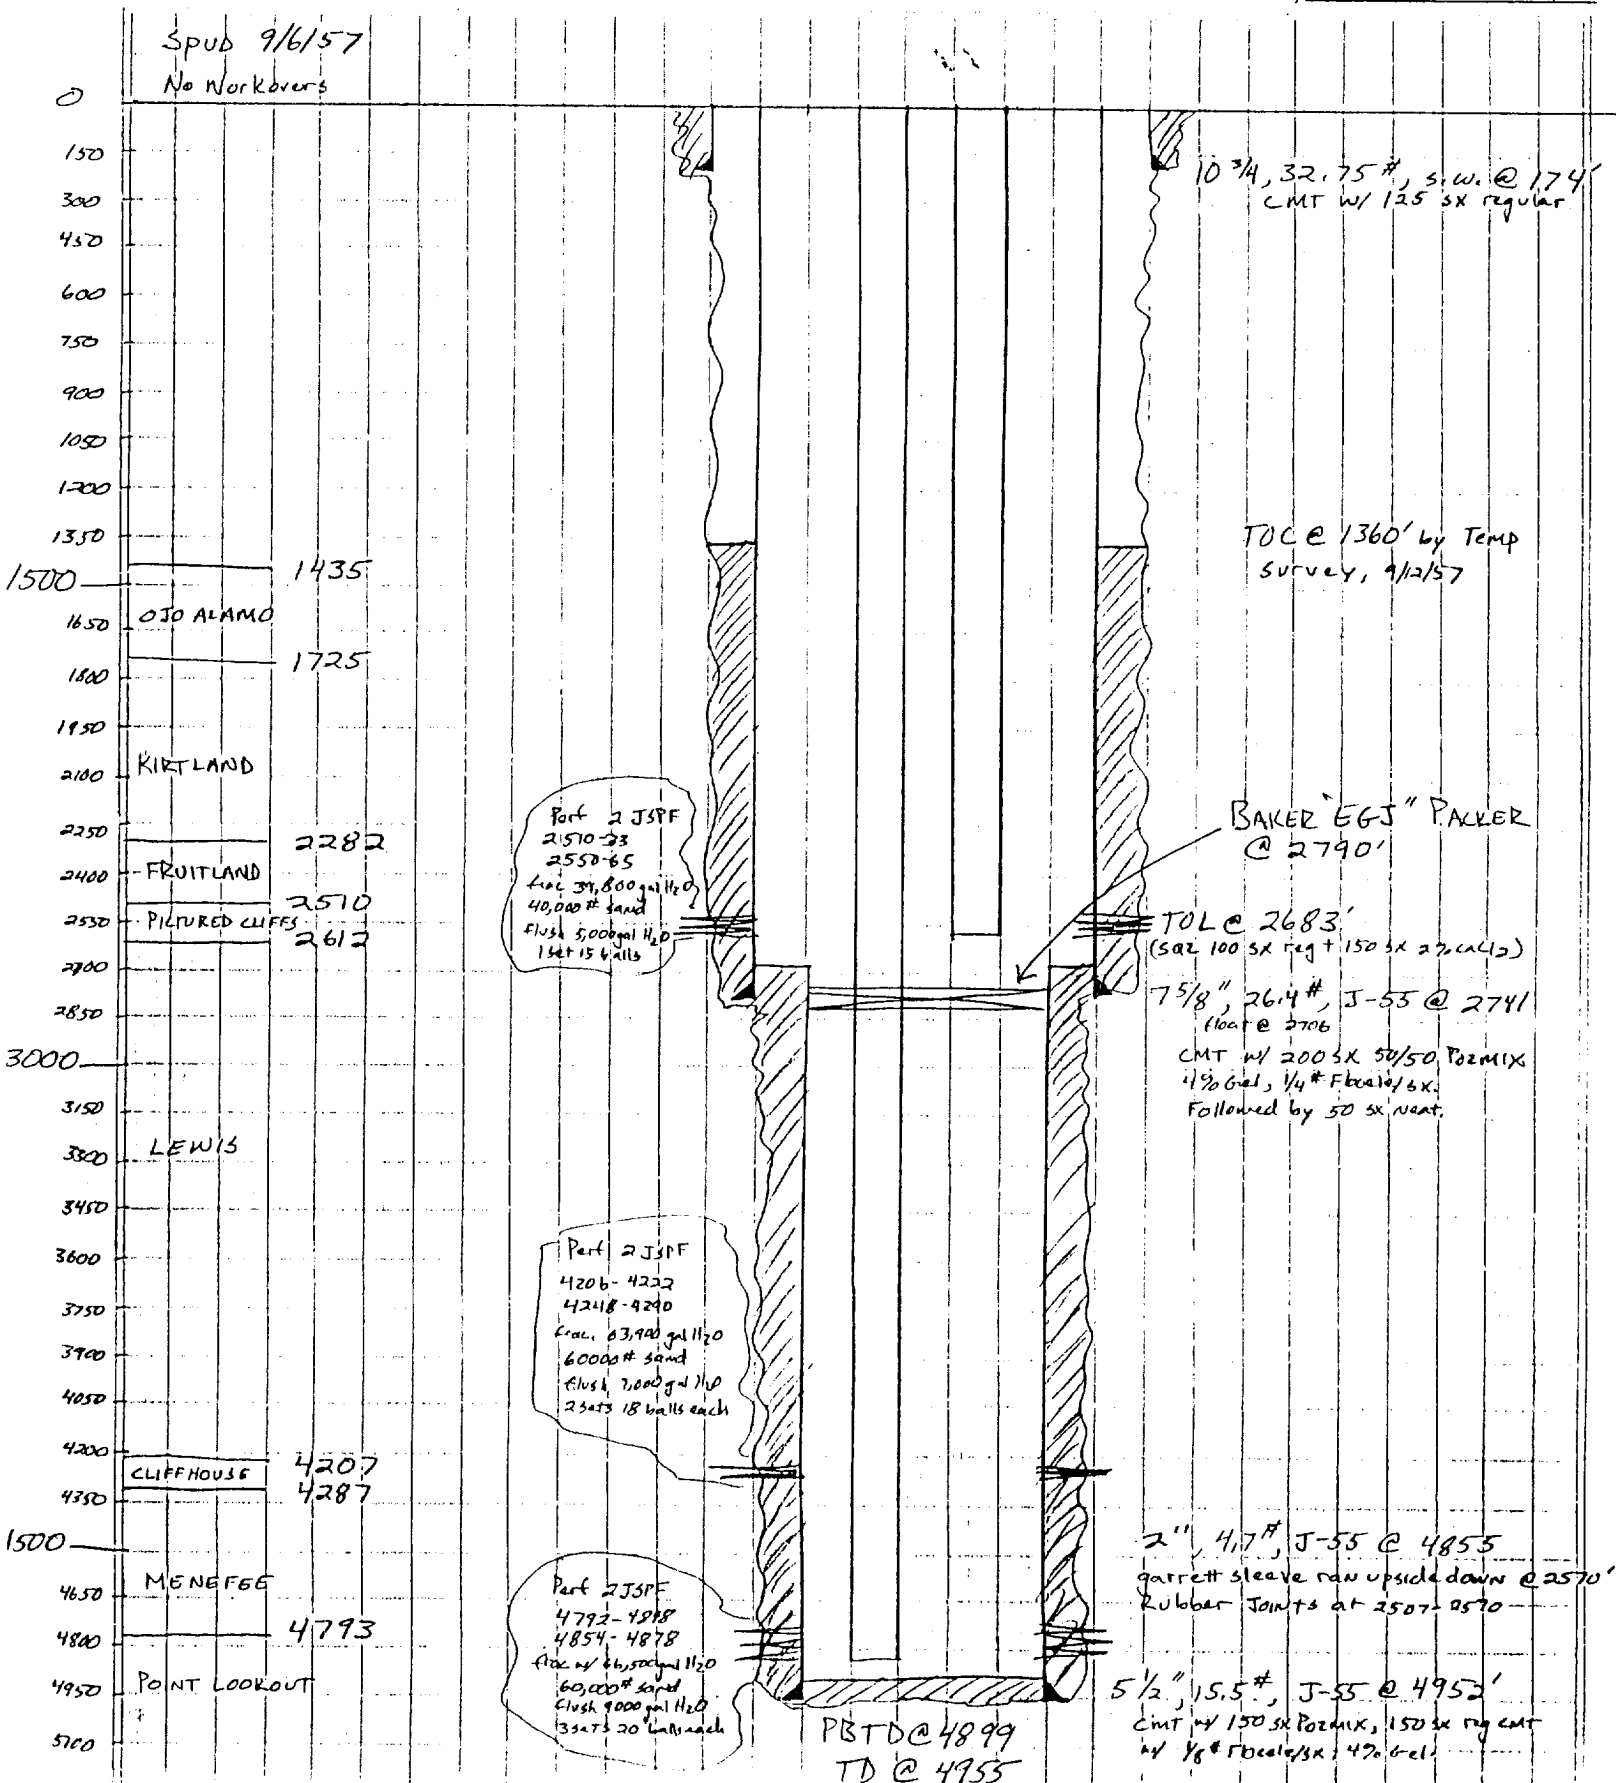 Spud 9/6/57
No Workovers
0
150
300
450
600
750
900
1050
1200
1350
1500
1650
1800
1950
2100
2250
2400
2550
2700
2850
3000
3150
3300
3450
3600
3750
3900
4050
4200
4350
1500
4650
4800
4950
5100
1435
OJO ALAMO
1725
KIRTLAND
2282
FRUITLAND
2510
PICTURED CLIFFS
2612
LEWIS
4207
CLIFFHOUSE
4287
MENEFEE
4793
POINT LOOKOUT
Perf 2 JSPF
2510-23
2550-65
frac 39,800 gal H2O
40,000 # sand
flush 5,000 gal H2O
1 set 15 balls
Perf 2 JSPF
4206-4222
4248-4290
frac. 63,900 gal H2O
60000 # sand
flush 7,000 gal H2O
2 sets 18 balls each
Perf 2 JSPF
4792-4818
4854-4878
frac w/ 66,500 gal H2O
60,000 # sand
flush 9000 gal H2O
3 sets 20 balls each
10 3/4, 32.75 #, s.w. @ 174'
CMT w/ 125 sx regular
TOC @ 1360' by Temp
survey, 9/12/57
BAKER "EGJ" PACKER
@ 2790'
TOL @ 2683'
(sqz 100 sx reg + 150 sx 2% CaCl2)
7 5/8", 26.4 #, J-55 @ 2741
float @ 2706
CMT w/ 200 sx 50/50 Pozmix
4% Gel, 1/4 # Flocele/sx.
Followed by 50 sx neat.
2", 4.7 #, J-55 @ 4855
garrett sleeve ran upside down @ 2570'
Rubber Joints at 2507-2570
5 1/2", 15.5 #, J-55 @ 4952'
Cmt w/ 150 sx Pozmix, 150 sx reg cmt
w/ 1/8 # Flocele/sx, 4% Gel.
PBTD @ 4899
TD @ 4955